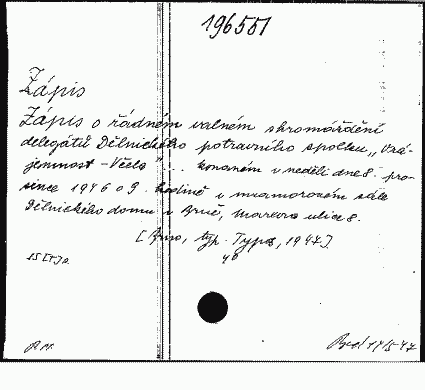 196551
Zápis
Zápis o řádném valném shromáždění
delegátů Dělnického potravního spolku „Vzá-
jemnost - Včela" ... konaném v neděli dne 8. pro-
since 1946 o 9. hodině v mramorovém sále
Dělnického domu v Brně, Marxova ulice 8.
[Brno, typ. Typos, 1947].
15 [1] s. 4°